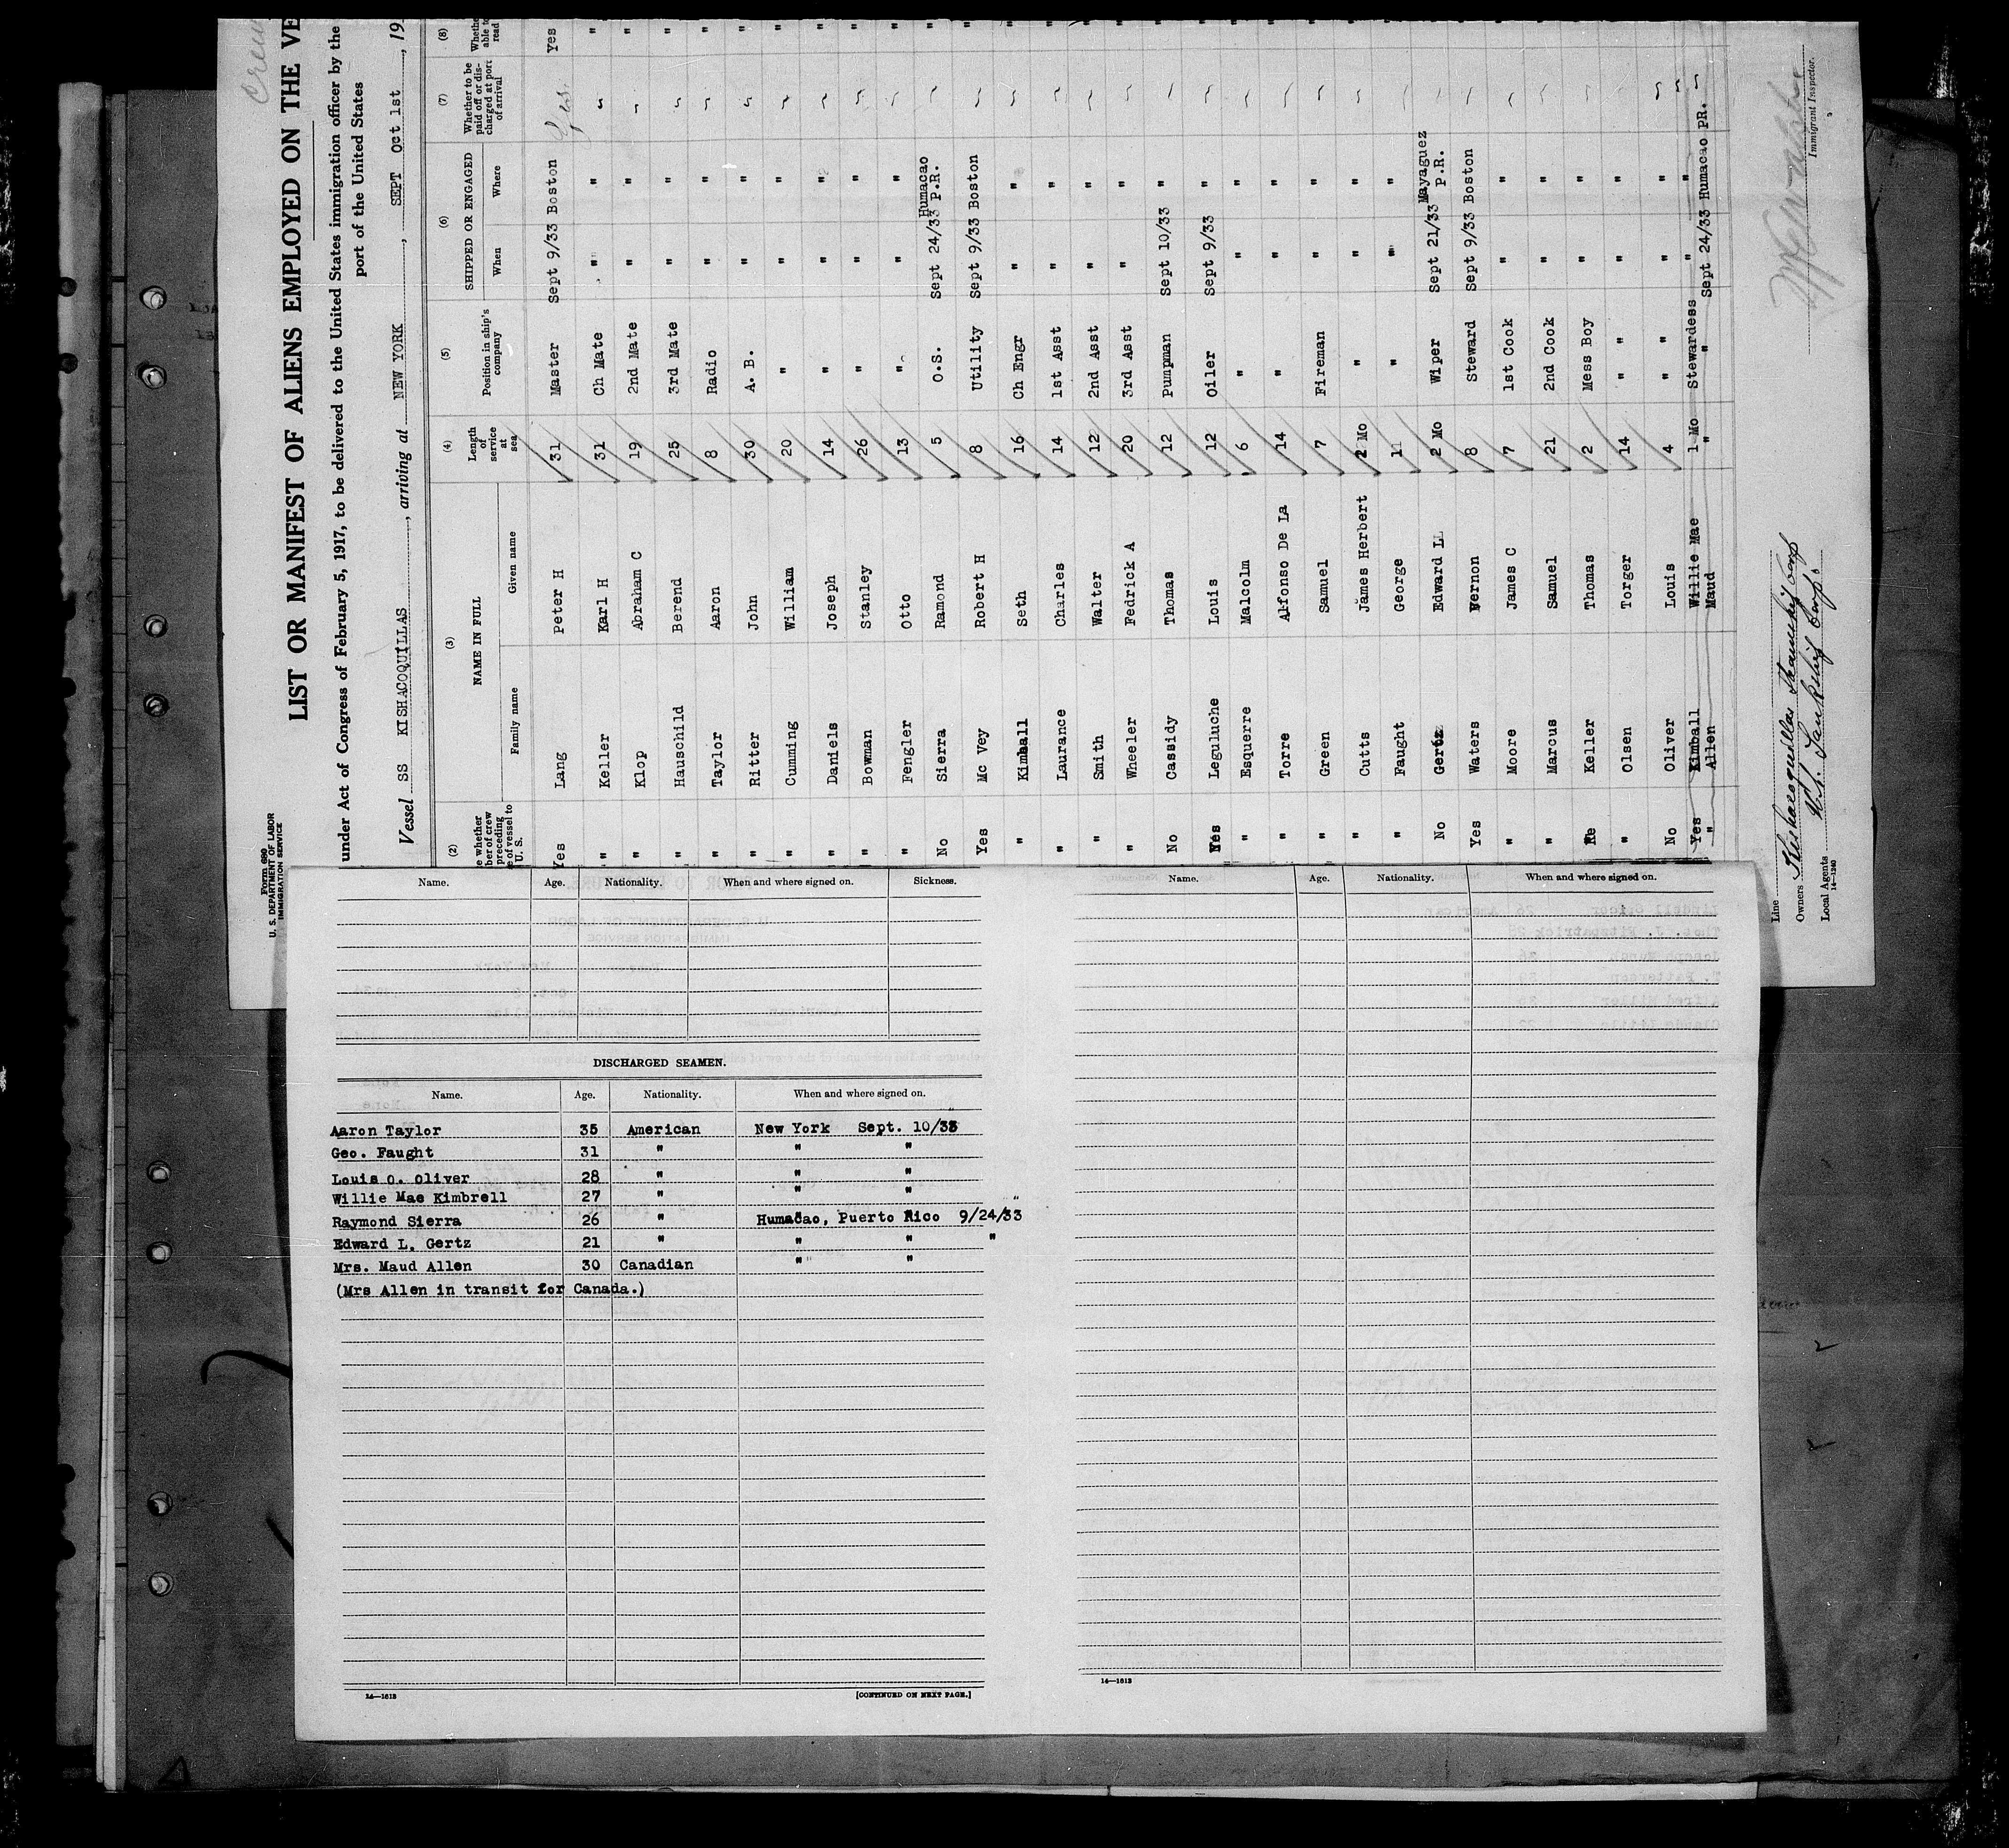 Crew
Form 680
U. S. DEPARTMENT OF LABOR
IMMIGRATION SERVICE
LIST OR MANIFEST OF ALIENS EMPLOYED ON THE VE
under Act of Congress of February 5, 1917, to be delivered to the United States immigration officer by the
port of the United States
Vessel SS KISHACOQUILLAS, arriving at NEW YORK, SEPT Oct 1st, 19
(2) (3) (4) (5) (6) (7) (8)
e whether
ber of crew
preceding
e of vessel to
U. S.
NAME IN FULL
Family name Given name
Length of service at sea
Position in ship's company
SHIPPED OR ENGAGED
When Where
Whether to be paid off or discharged at port of arrival
Whethe
able to
read
Yes Lang Peter H 31 Master Sept 9/33 Boston Yes. Yes
" Keller Karl H 31 Ch Mate " " "
" Klop Abraham C 19 2nd Mate " " "
" Hauschild Berend 25 3rd Mate " " "
" Taylor Aaron 8 Radio " " "
" Ritter John 30 A. B. " " "
" Cumming William 20 " " " "
" Daniels Joseph 14 " " " "
" Bowman Stanley 26 " " " "
" Fengler Otto 13 " " " "
No Sierra Ramond 5 O.S. Sept 24/33 Humacao P.R. "
Yes Mc Vey Robert H 8 Utility Sept 9/33 Boston "
" Kimball Seth 16 Ch Engr " " "
" Laurance Charles 14 1st Asst " " "
" Smith Walter 12 2nd Asst " " "
" Wheeler Fedrick A 20 3rd Asst " " "
No Cassidy Thomas 12 Pumpman Sept 10/33 " "
Yes Leguluche Louis 12 Oiler Sept 9/33 " "
" Esquerre Malcolm 6 " " " "
" Torre Alfonso De La 14 " " " "
" Green Samuel 7 Fireman " " "
" Cutts James Herbert 2 Mo " " " "
" Faught George 11 " " " "
No Gertz Edward L 2 Mo Wiper Sept 21/33 Mayaguez P.R. "
Yes Waters Vernon 8 Steward Sept 9/33 Boston "
" Moore James C 7 1st Cook " " "
" Marcus Samuel 21 2nd Cook " " "
Keller Thomas 2 Mess Boy " " "
" Olsen Torger 14 " " " "
No Oliver Louis 4 " " " "
Yes Kimball Willie Mae 1 Mo Stewardess " " "
" Allen Maud " " Sept 24/33 Humacao PR.
Line
Owners Kishacoquillas Steamship Corp
Local Agents
14—1240
Immigrant Inspector.
Name. Age. Nationality. When and where signed on. Sickness.
DISCHARGED SEAMEN.
Name. Age. Nationality. When and where signed on.
Aaron Taylor 35 American New York Sept. 10/33
Geo. Faught 31 " " "
Louis O. Oliver 28 " " "
Willie Mae Kimbrell 27 " " "
Raymond Sierra 26 " Humacao, Puerto Rico 9/24/33
Edward L. Gertz 21 " " " "
Mrs. Maud Allen 30 Canadian " "
(Mrs Allen in transit for Canada.)
14—1613 [CONTINUED ON NEXT PAGE.]
Name. Age. Nationality. When and where signed on.
14—1613